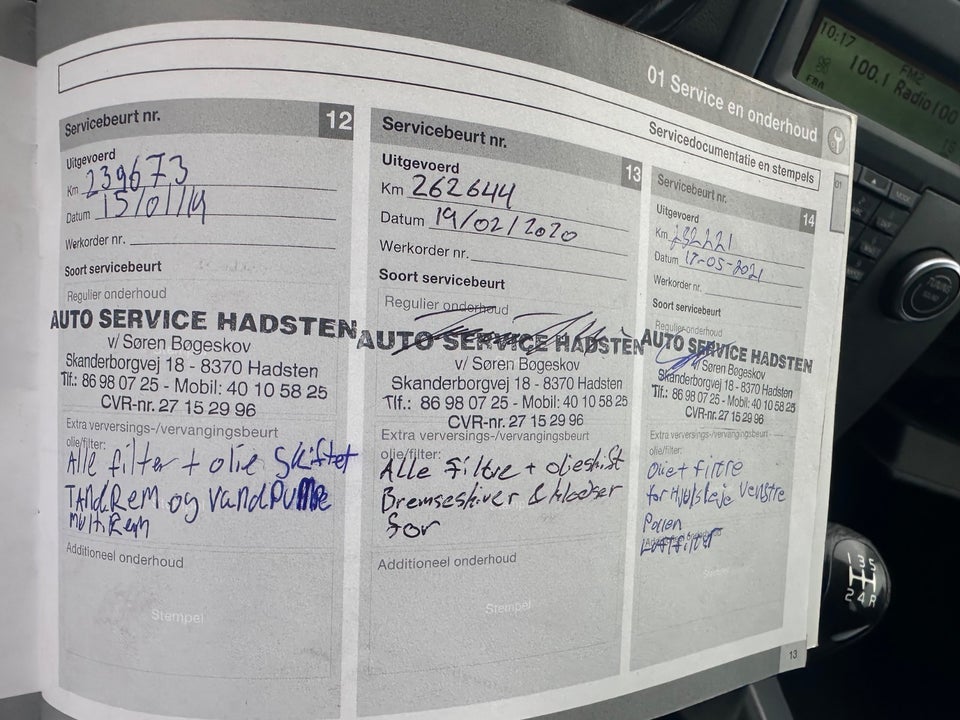 01 Service en onderhoud
Servicedocumentatie en stempels
01
Servicebeurt nr.
12
Uitgevoerd
Km 239673
Datum 15/01/19
Werkorder nr.
Soort servicebeurt
Regulier onderhoud
AUTO SERVICE HADSTEN
v/ Søren Bøgeskov
Skanderborgvej 18 - 8370 Hadsten
Tlf.: 86 98 07 25 - Mobil: 40 10 58 25
CVR-nr. 27 15 29 96
Extra verversings-/vervangingsbeurt
olie/filter:
Alle filter + olie skiftet
TANDREM og VANDPUMPE
MULTIREM
Additioneel onderhoud
Stempel
Servicebeurt nr.
13
Uitgevoerd
Km 262644
Datum 19/02/2020
Werkorder nr.
Soort servicebeurt
Regulier onderhoud
AUTO SERVICE HADSTEN
v/ Søren Bøgeskov
Skanderborgvej 18 - 8370 Hadsten
Tlf.: 86 98 07 25 - Mobil: 40 10 58 25
CVR-nr. 27 15 29 96
Extra verversings-/vervangingsbeurt
olie/filter:
Alle Filtre + olieskift
Bremseskiver & klodser
for
Additioneel onderhoud
Stempel
Servicebeurt nr.
14
Uitgevoerd
Km 282221
Datum 17-05-2021
Werkorder nr.
Soort servicebeurt
Regulier onderhoud
AUTO SERVICE HADSTEN
v/ Søren Bøgeskov
Skanderborgvej 18 - 8370 Hadsten
Tlf.: 86 98 07 25 - Mobil: 40 10 58 25
CVR-nr. 27 15 29 96
Extra verversings-/vervangingsbeurt
olie/filter:
filtre
for Hjulleje Venstre
Pollen
Luftfilter
Stempel
13
10:17
FM2
100.1 Radio100
TUNING
SOUND
1 3 5
2 4 R